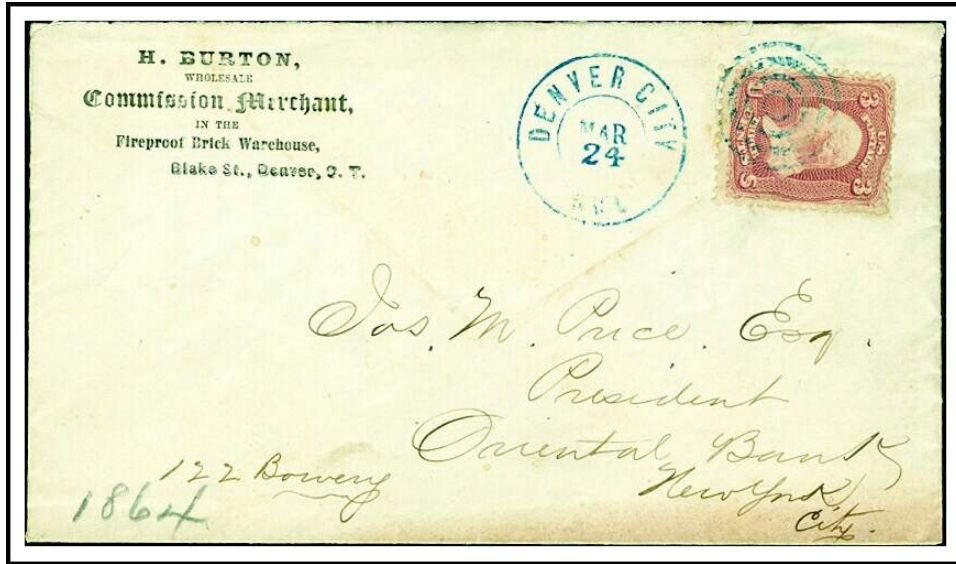 H. BURTON,
WHOLESALE
Commission Merchant,
IN THE
Fireproof Brick Warehouse,
Blake St., Denver, C. T.
DENVER CITY
MAR
24
U.S. POSTAGE
3 3
Jos. M. Price. Esq.
President
Oriental Bank
122 Bowery
New York
City.
1864